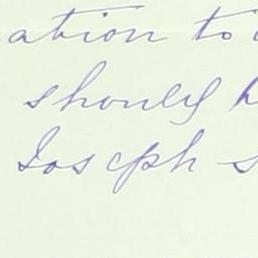 ation to
should h
Joseph s